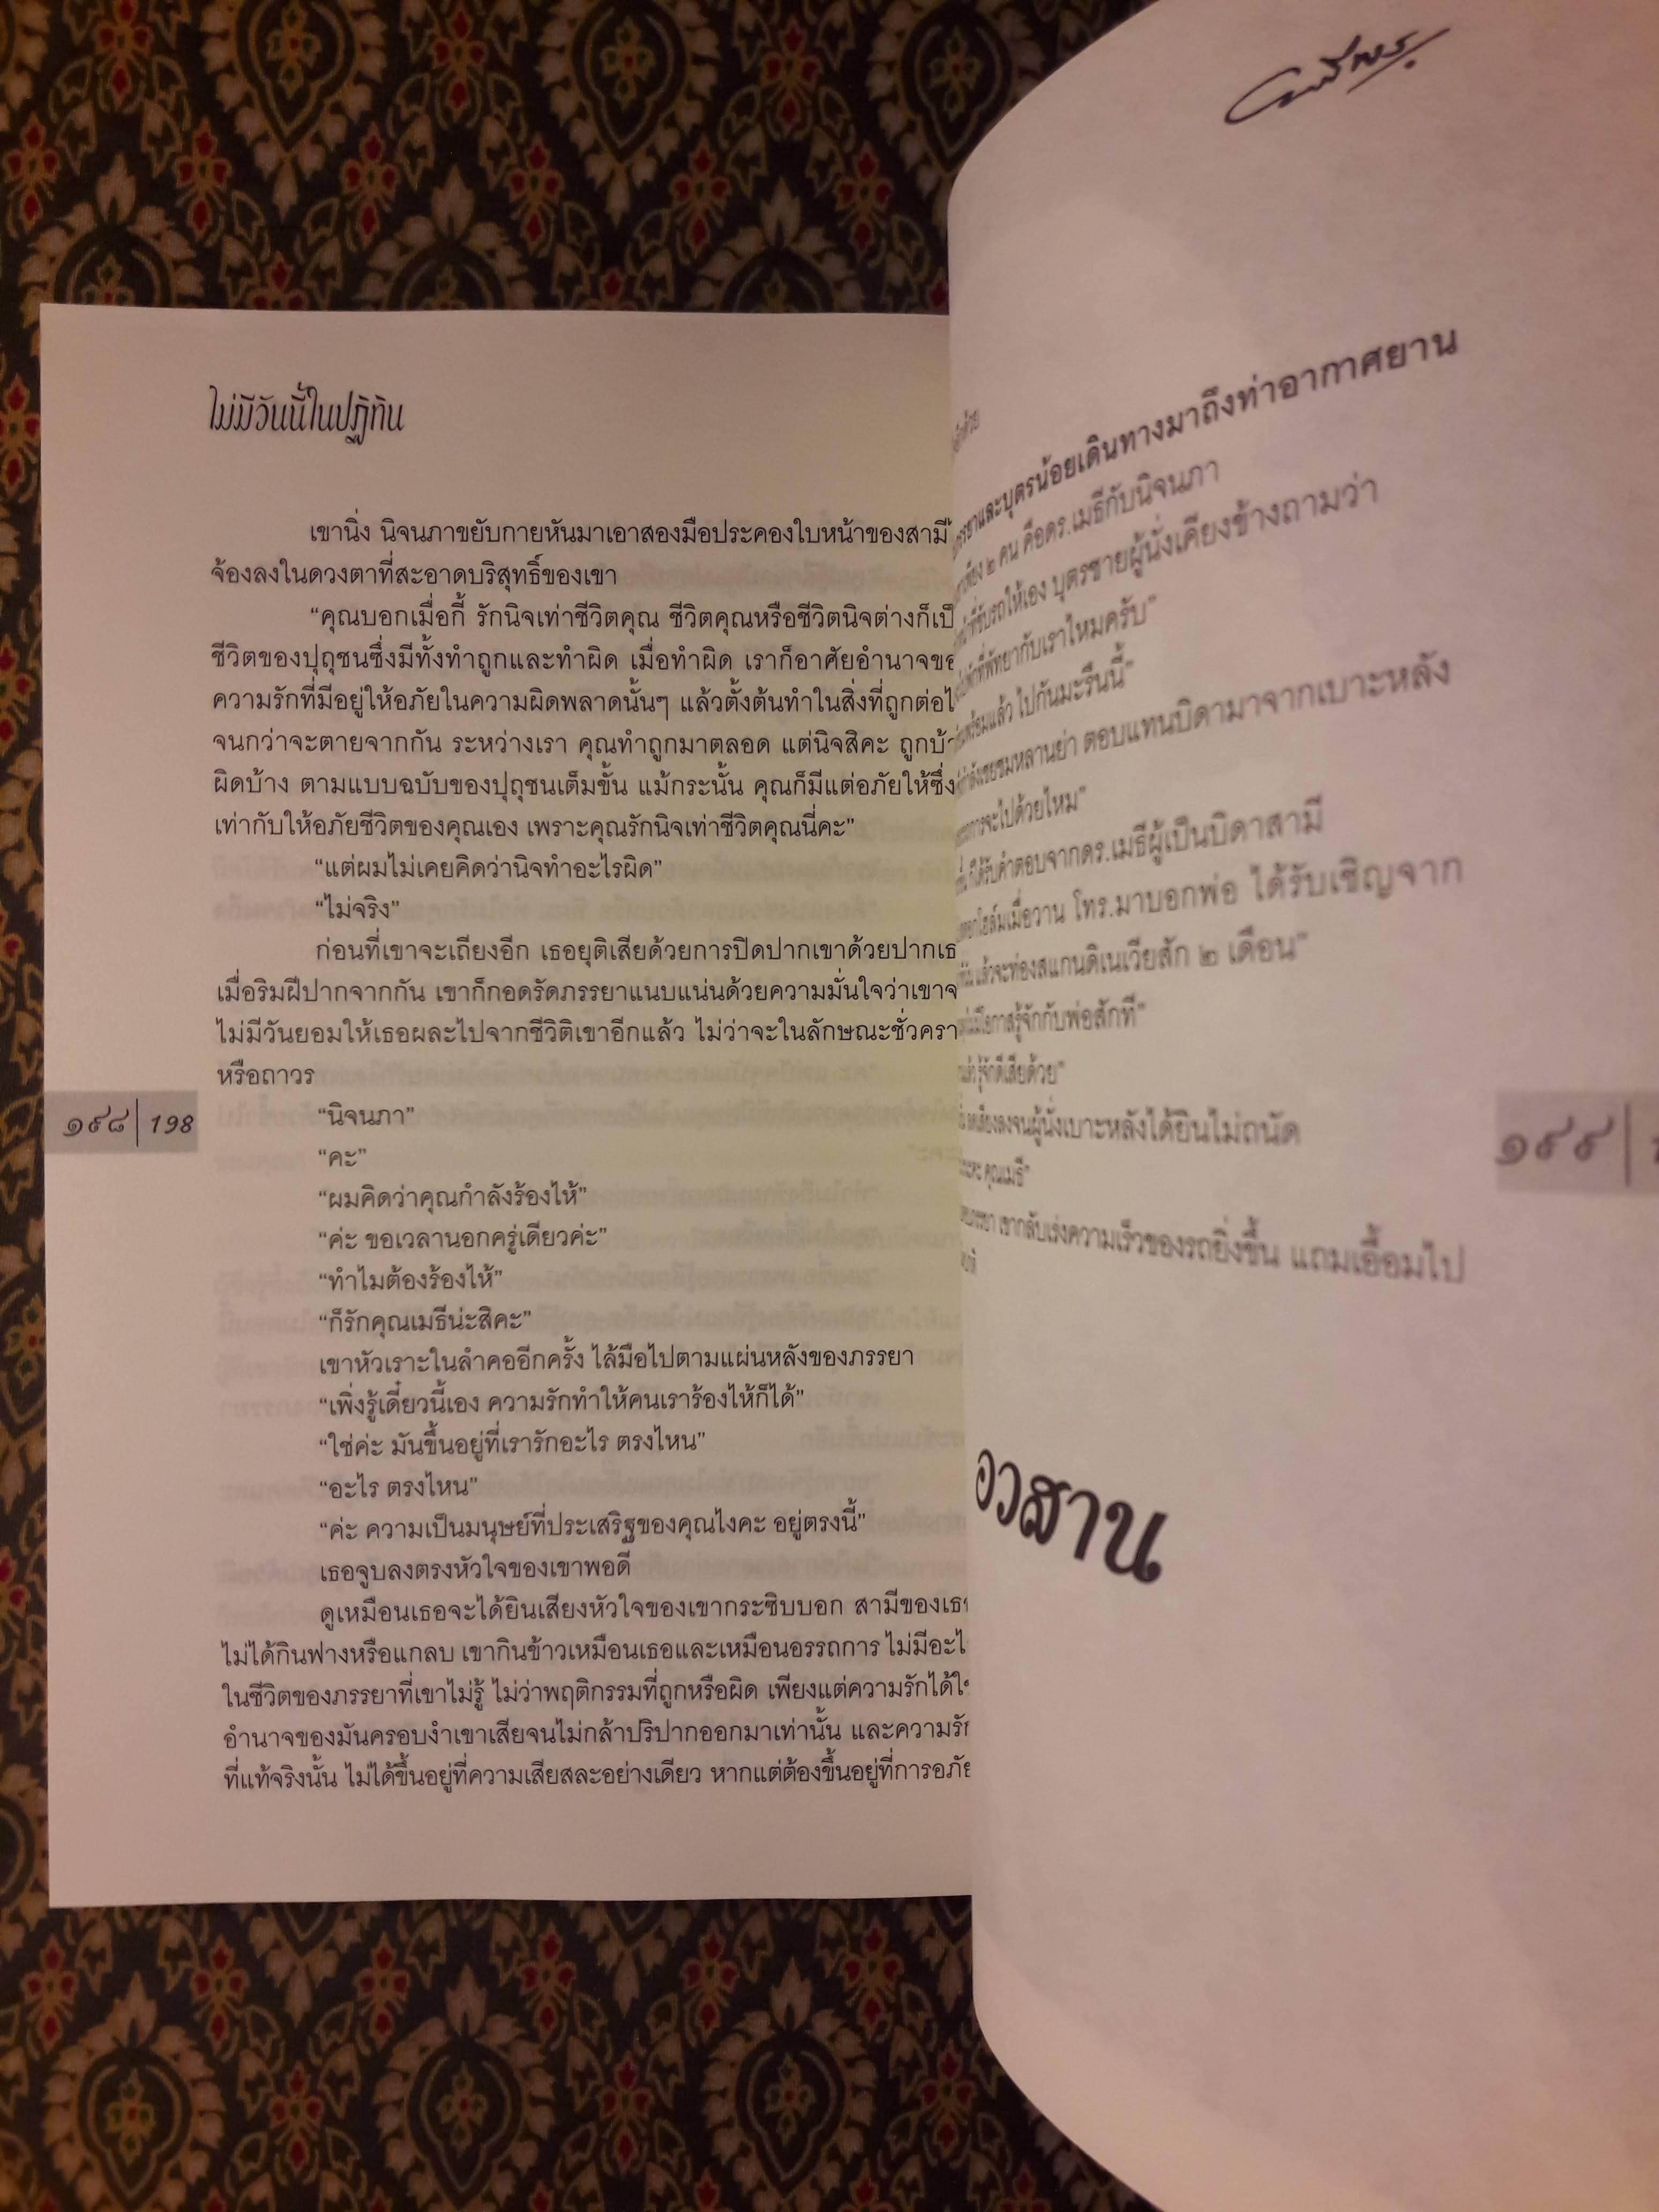 ไม่มีวันนี้ในปฏิทิน
เขานิ่ง นิจนภาขยับกายหันมาเอาสองมือประคองใบหน้าของสามี
จ้องลงในดวงตาที่สะอาดบริสุทธิ์ของเขา
“คุณบอกเมื่อกี้ รักนิจเท่าชีวิตคุณ ชีวิตคุณหรือชีวิตนิจต่างก็
ชีวิตของปุถุชนซึ่งมีทั้งทำถูกและทำผิด เมื่อทำผิด เราก็อาศัยอำนาจ
ความรักที่มีอยู่ให้อภัยในความผิดพลาดนั้นๆ แล้วตั้งต้นทำในสิ่งที่ถูกต่อ
จนกว่าจะตายจากกัน ระหว่างเรา คุณทำถูกมาตลอด แต่นิจสิคะ ถูก
ผิดบ้าง ตามแบบฉบับของปุถุชนเต็มขั้น แม้กระนั้น คุณก็มีแต่อภัยให้ซึ่ง
เท่ากับให้อภัยชีวิตของคุณเอง เพราะคุณรักนิจเท่าชีวิตคุณนี่คะ”
“แต่ผมไม่เคยคิดว่านิจทำอะไรผิด”
“ไม่จริง”
ก่อนที่เขาจะเถียงอีก เธอยุติเสียด้วยการปิดปากเขาด้วยปาก
เมื่อริมฝีปากจากกัน เขาก็กอดรัดภรรยาแนบแน่นด้วยความมั่นใจว่าเขา
ไม่มีวันยอมให้เธอผละไปจากชีวิติเขาอีกแล้ว ไม่ว่าจะในลักษณะ
หรือถาวร
“นิจนภา”
“คะ”
“ผมคิดว่าคุณกำลังร้องไห้”
“ค่ะ ขอเวลานอกครู่เดียวค่ะ”
“ทำไมต้องร้องไห้”
“ก็รักคุณเมธีน่ะสิคะ”
เขาหัวเราะในลำคออีกครั้ง ไล้มือไปตามแผ่นหลังของภรรยา
“เพิ่งรู้เดี๋ยวนี้เอง ความรักทำให้คนเราร้องไห้ก็ได้”
“ใช่ค่ะ มันขึ้นอยู่ที่เรารักอะไร ตรงไหน”
“อะไร ตรงไหน”
“ค่ะ ความเป็นมนุษย์ที่ประเสริฐของคุณไงคะ อยู่ตรงนี้”
เธอจูบลงตรงหัวใจของเขาพอดี
ดูเหมือนเธอจะได้ยินเสียงหัวใจของเขากระซิบบอก สามีของ
ไม่ได้กินฟางหรือแกลบ เขากินข้าวเหมือนเธอและเหมือนอรรถการ ไม่มี
ในชีวิตของภรรยาที่เขาไม่รู้ ไม่ว่าพฤติกรรมที่ถูกหรือผิด เพียงแต่ความรักได้
อำนาจของมันครอบงำเขาเสียจนไม่กล้าปริปากออกมาเท่านั้น และ
ที่แท้จริงนั้น ไม่ได้ขึ้นอยู่ที่ความเสียสละอย่างเดียว หากแต่ต้องขึ้นอยู่ที่การ
๑๙๘ | 198
และบุตรน้อยเดินทางมาถึงท่าอากาศยาน
๒ คน คือดร.เมธีกับนิจนภา
ที่ขับรถให้เอง บุตรชายผู้นั่งเคียงข้างถามว่า
ที่พัทยากับเราไหมครับ”
พร้อมแล้ว ไปกันมะรืนนี้”
หลานย่า ตอบแทนบิดามาจากเบาะหลัง
จะไปด้วยไหม”
ได้รับคำตอบจากดร.เมธีผู้เป็นบิดาสามี
เมื่อวาน โทร.มาบอกพ่อ ได้รับเชิญจาก
แล้วจะท่องสแกนดิเนเวียสัก ๒ เดือน”
รู้จักกับพ่อสักที”
รู้จักดีเสียด้วย”
ผู้นั่งเบาะหลังได้ยินไม่ถนัด
คุณเมธี”
เขากลับเร่งความเร็วของรถยิ่งขึ้น แถมเอื้อมไป
อวสาน
๑๙๙ |